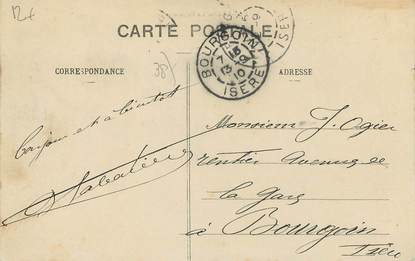 CARTE POSTALE
BOURGOIN
7 15
13 -9
10
ISERE
ISERE
CORRESPONDANCE
38
ADRESSE
Bonjour et à bientôt
Sabatier
Monsieur J. Ogier
rentier Avenue de
la gare
à Bourgoin
Isère